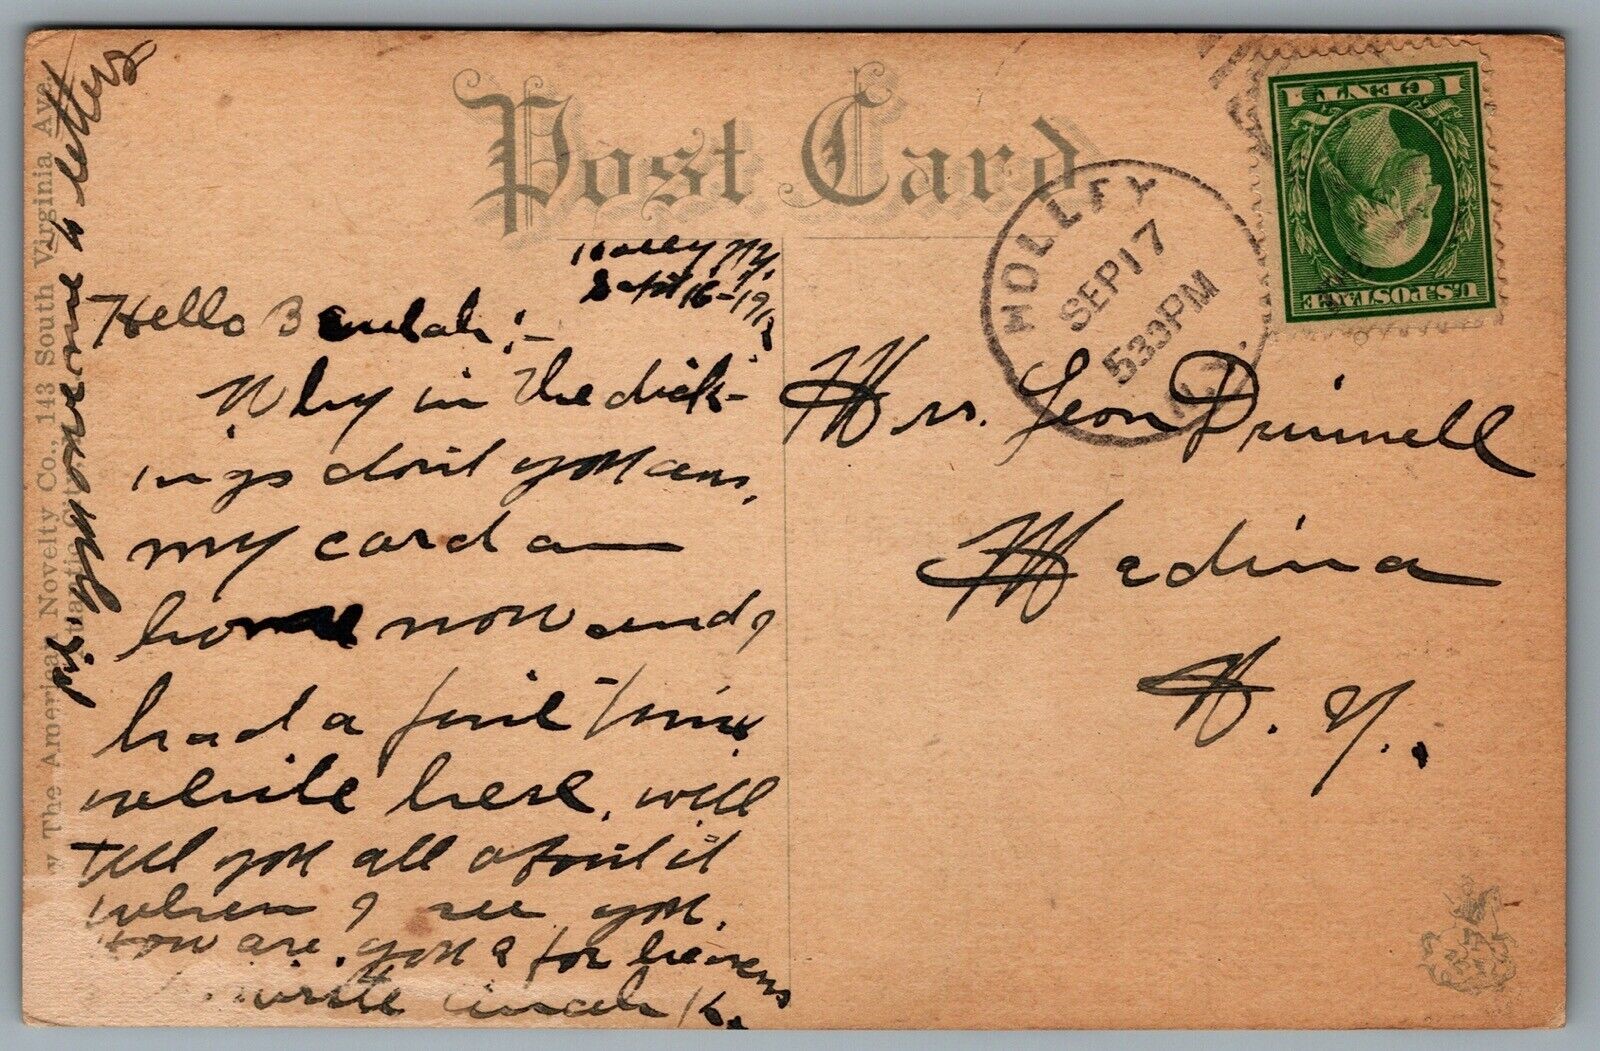 Post Card
Holley N.Y.
Sept 16-191
Hello Beulah:-
Why in the dick-
ings don't you ans.
my card am
home now and,
had a fine time
while here, will
tell you all about it
when I see you.
How are you & for heavens
write
p.s. you owe me to letters
y The American Novelty Co., 143 South Virginia Ave.
Atlantic City
HOLLEY
SEP 17
530PM
N.Y.
1 CENT 1
U.S. POSTAGE
Mrs. Leon Grinnell
Medina
N. Y.